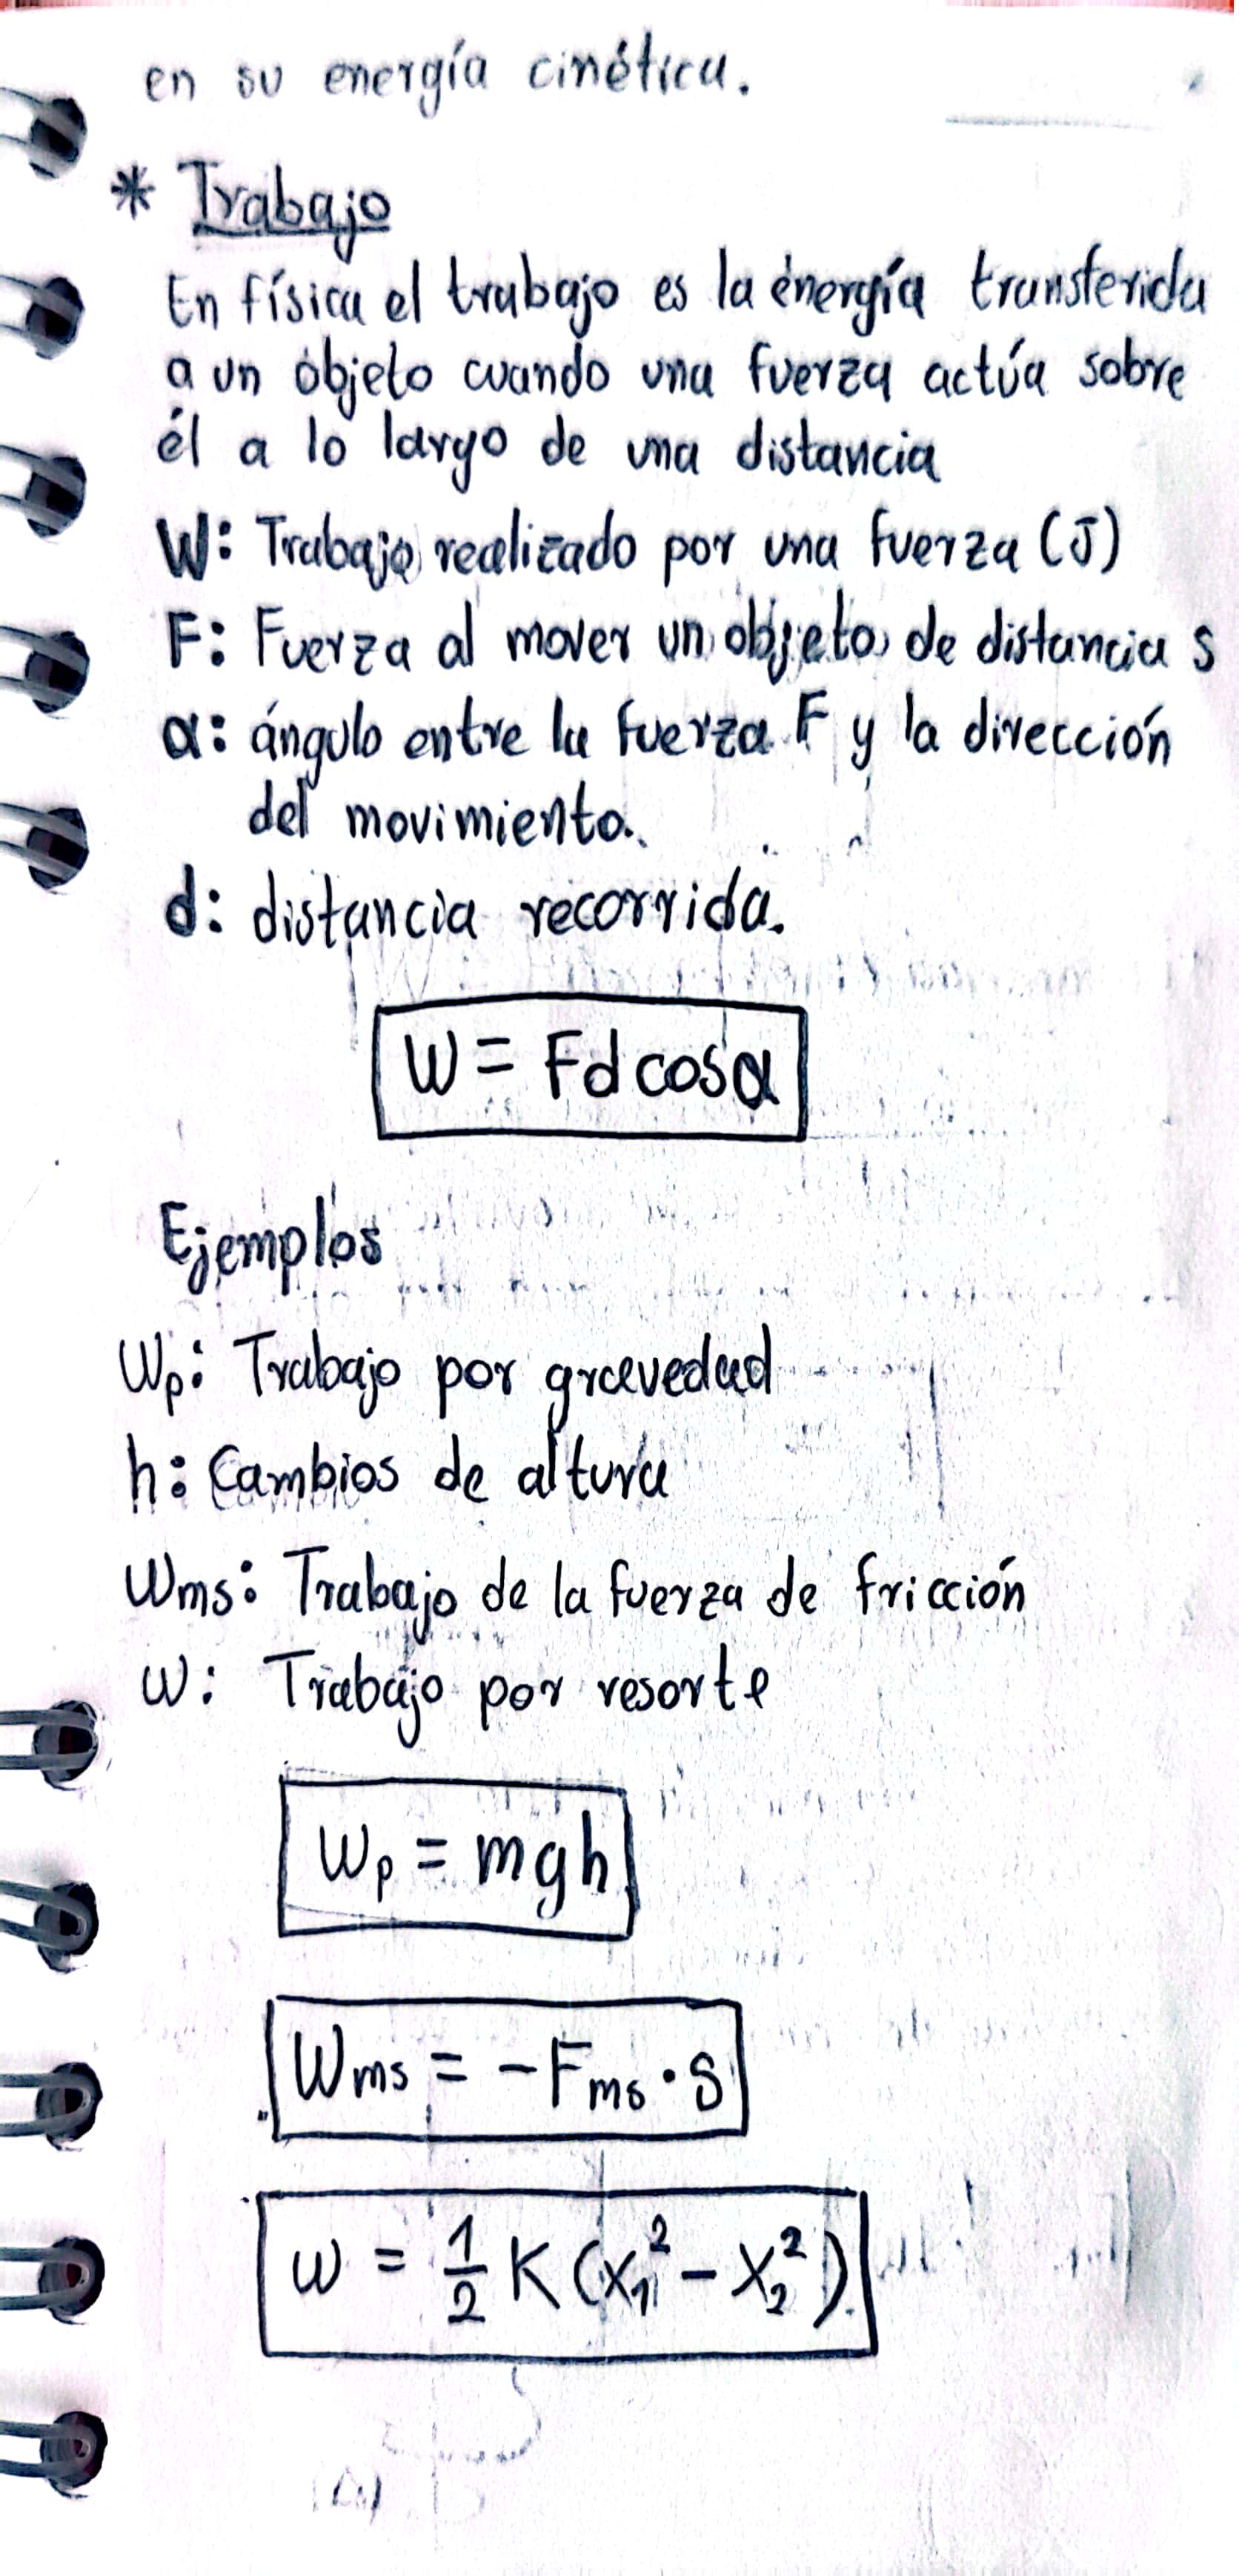 en su energía cinética.
* Trabajo
En física el trabajo es la énergía transferida
a un objeto cuando una fuerza actúa sobre
él a lo largo de una distancia
W: Trabajo realizado por una fuerza (J)
F: Fuerza al mover un objeto de distancia s
α: ángulo entre la fuerza F y la dirección
del movimiento.
d: distancia recorrida.
W = Fd cosα
Ejemplos
Wp: Trabajo por gravedad
h: Cambios de altura
Wms: Trabajo de la fuerza de fricción
W: Trabajo por resorte
Wp = mgh
Wms = -Fms·s
W = 1/2 K (x₁² - x₂²)